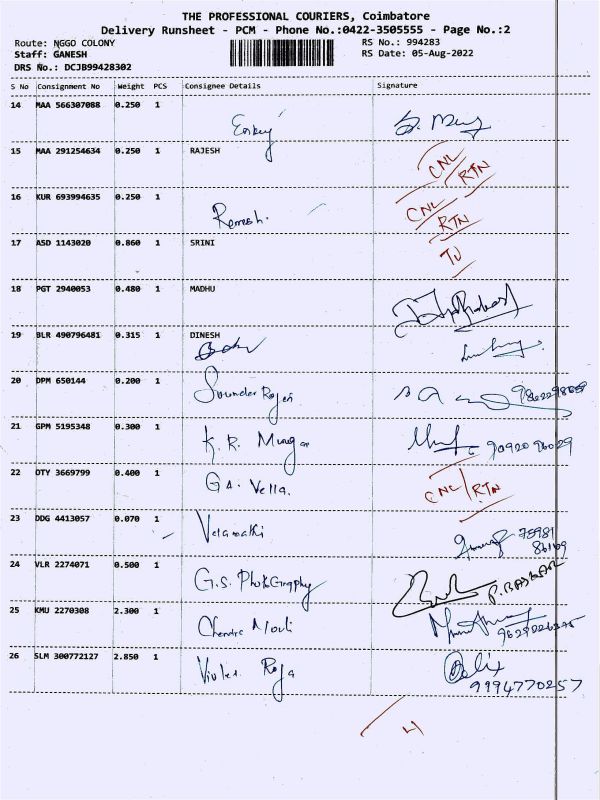 THE PROFESSIONAL COURIERS, Coimbatore
Delivery Runsheet - PCM - Phone No.:0422-3505555 - Page No.:2
Route: NGGO COLONY RS No.: 994283
Staff: GANESH RS Date: 05-Aug-2022
DRS No.: DCJB99428302
S No Consignment No Weight PCS Consignee Details Signature
14 MAA 566307088 0.250 1
15 MAA 291254634 0.250 1 RAJESH CNL
RTN
16 KUR 693994635 0.250 1 CNL
Remesh. RTN
17 ASD 1143020 0.860 1 SRINI
18 PGT 2940053 0.480 1 MADHU
19 BLR 490796481 0.315 1 DINESH
20 DPM 650144 0.200 1
Sounder Rajan
21 GPM 5195348 0.300 1
K. R. Murga 90920 96029
22 OTY 3669799 0.400 1
GA. Vella. CNL/RTN
23 DDG 4413057 0.070 1
Velamathi 75981
86169
24 VLR 2274071 0.500 1
G.S. PhotoGraphy P. BASKAR
25 KMU 2270308 2.300 1
Chendra Mouli
26 SLM 300772127 2.850 1
Roja
9994770257
4